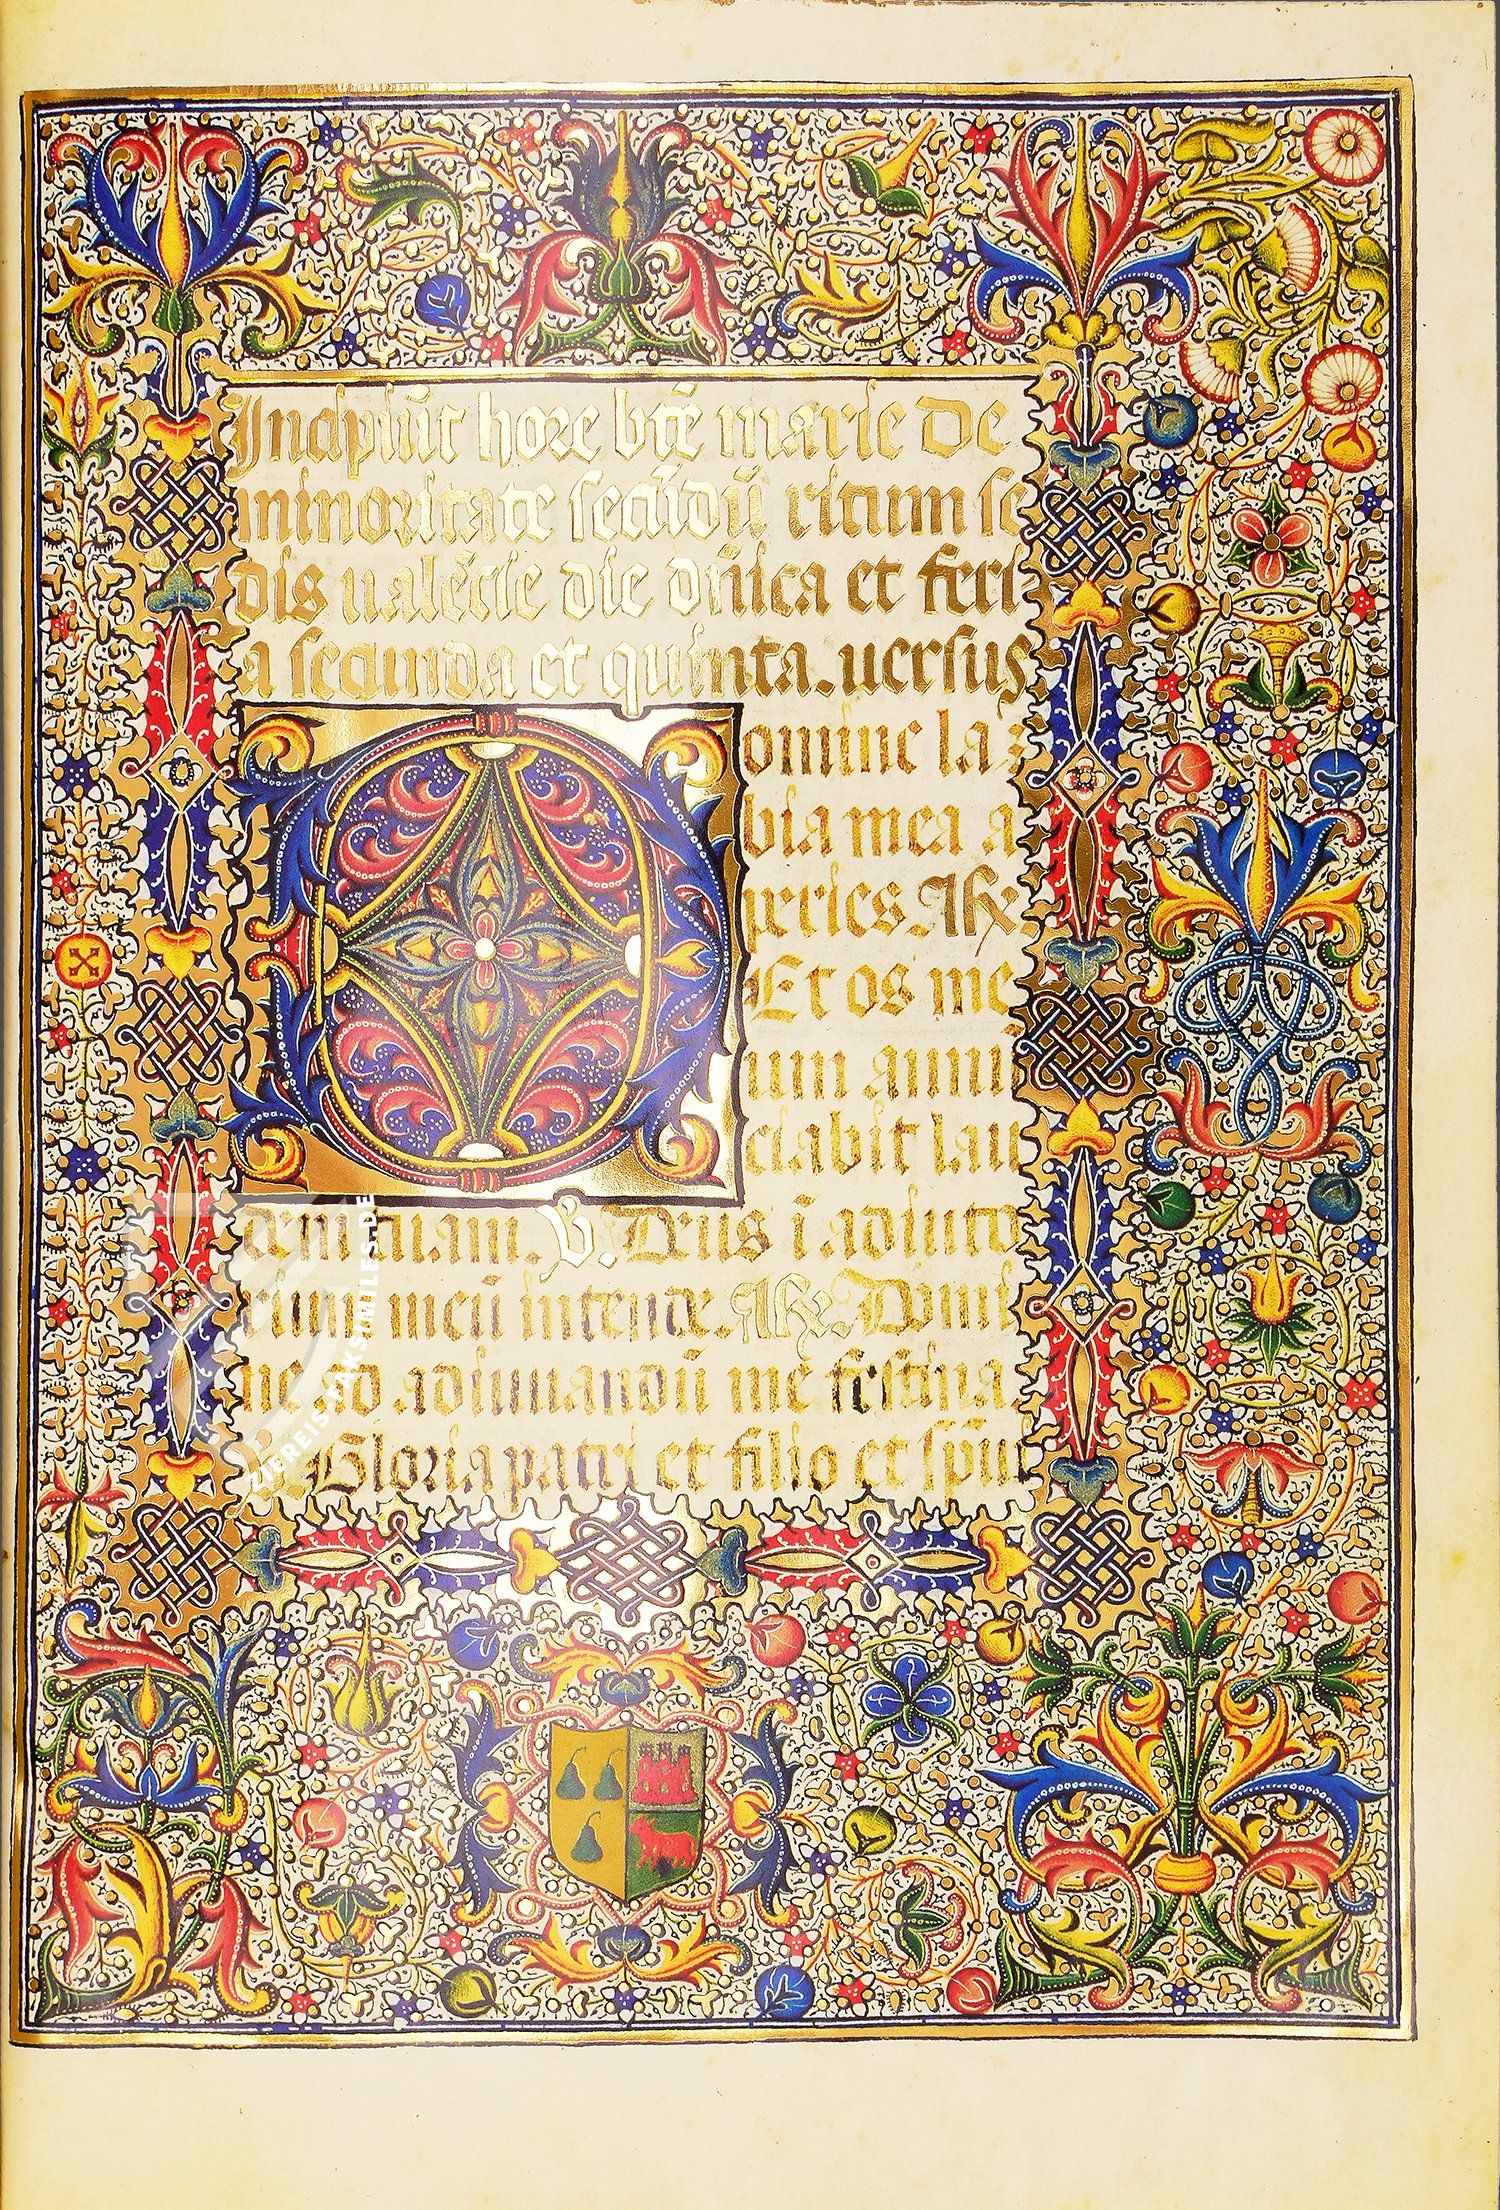 Incipiūt hore btē marie de
minoritate secūdū ritum se
dis ualēcie die dñica et feri
a secunda et quinta. uersus
Domine la
bia mea a
peries. Rx
Et os me
um annū
ciabit lau
dem tuam. V. Deus ī adiuto
rium meū intende. Rx. Domi
ne ad adiuuandū me festina.
Gloria patri et filio et spūi
ZIEREIS-FAKSIMILES.DE